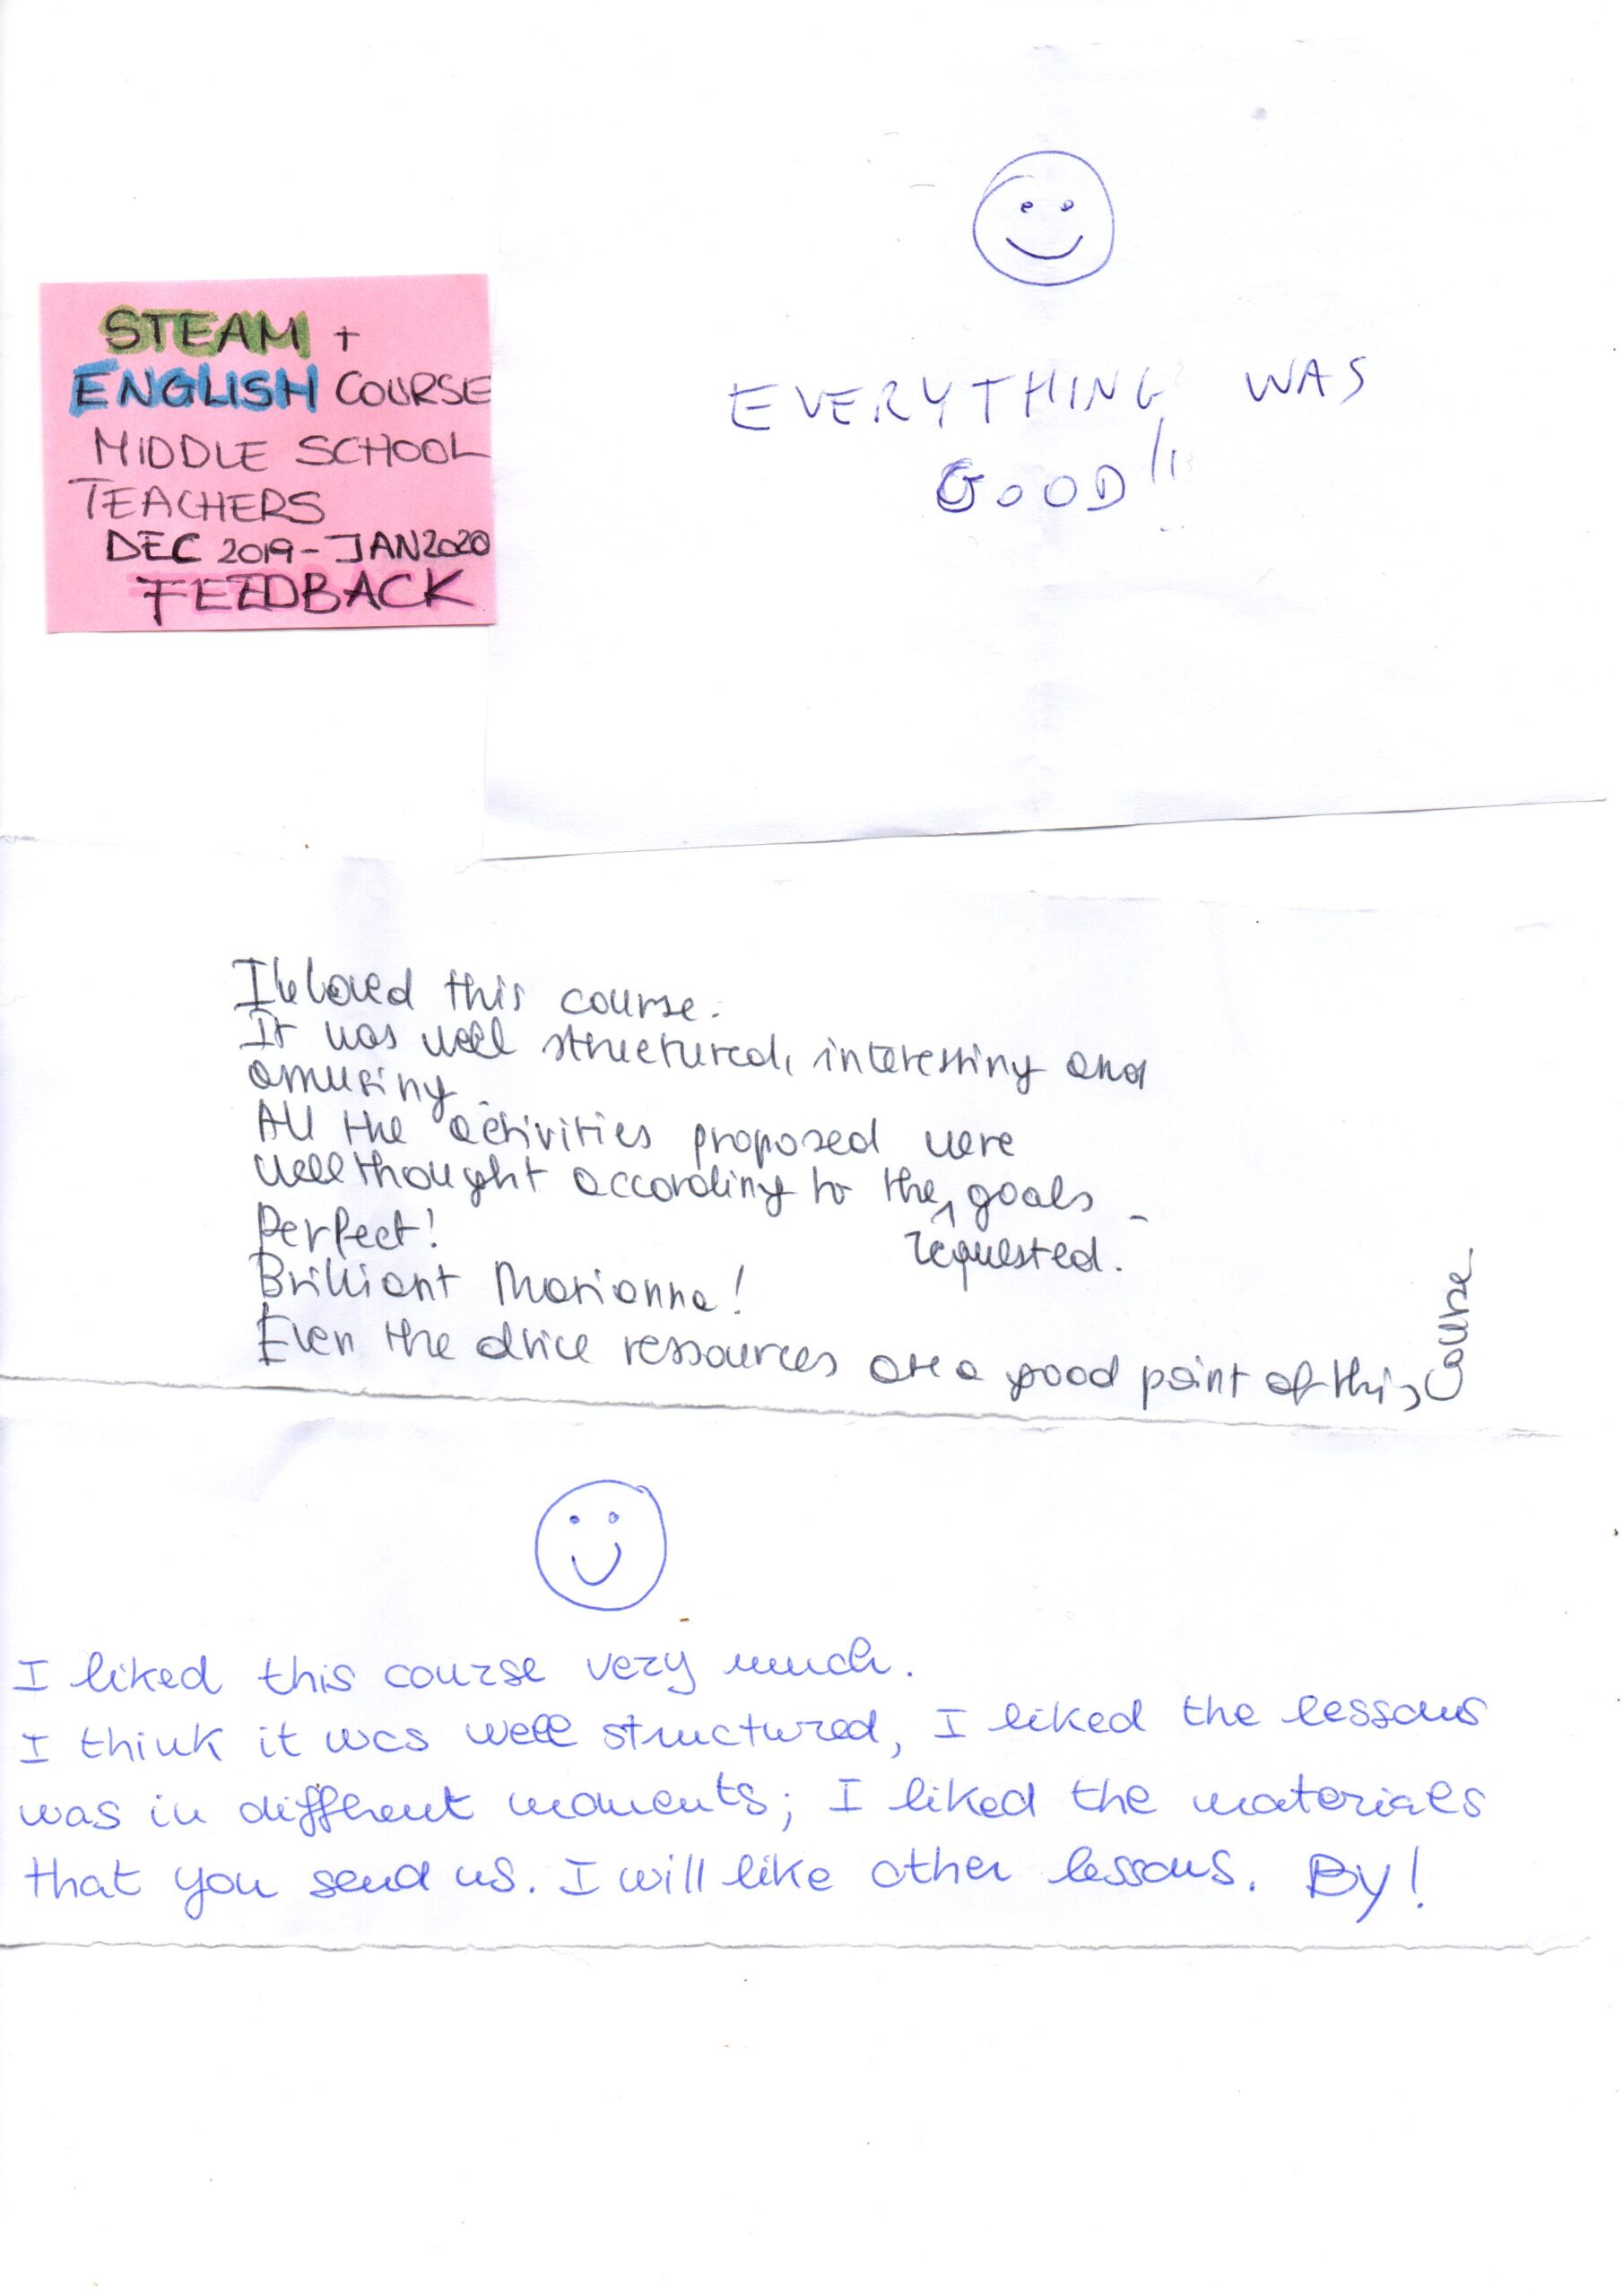 STEAM +
ENGLISH COURSE
MIDDLE SCHOOL
TEACHERS
DEC 2019 - JAN 2020
FEEDBACK
EVERYTHING WAS
GOOD!!
I loved this course.
It was well structured, interesting and
amusing.
All the activities proposed were
well thought according to the requested goals.
Perfect!
Brilliant Marianna!
Even the drive ressources are a good point of this course
I liked this course very much.
I think it was well structured, I liked the lessons
was in different moments; I liked the materials
that you send us. I will like other lessons. By!